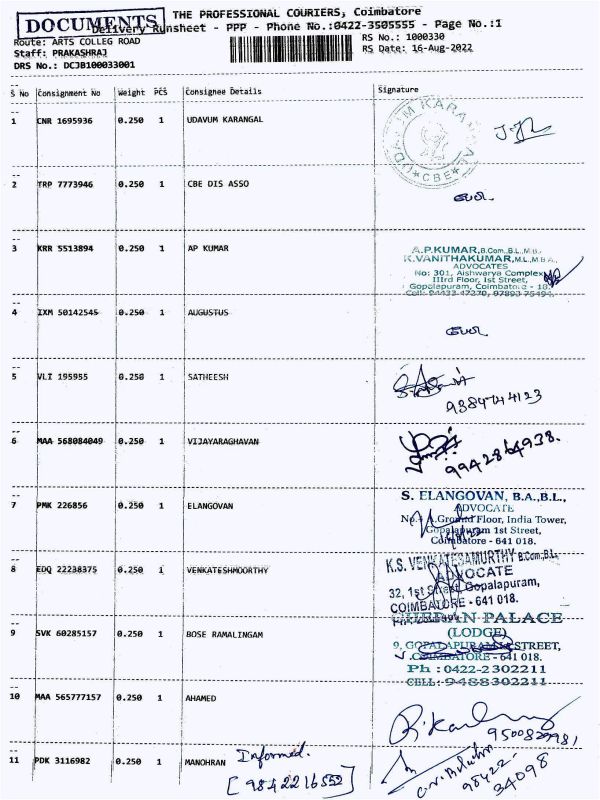 DOCUMENTS
THE PROFESSIONAL COURIERS, Coimbatore
Delivery Runsheet - PPP - Phone No.:0422-3505555 - Page No.:1
Route: ARTS COLLEG ROAD
RS No.: 1000330
Staff: PRAKASHRAJ
RS Date: 16-Aug-2022
DRS No.: DCJB100033001
S No Consignment No Weight PCS Consignee Details Signature
1 CNR 1695936 0.250 1 UDAVUM KARANGAL
UDAVUM KARANGAL
CBE
2 TRP 7773946 0.250 1 CBE DIS ASSO
3 KRR 5513894 0.250 1 AP KUMAR
A.P.KUMAR, B.Com.,B.L.,M.B.,
K.VANITHAKUMAR, M.L.,M.B.A.,
ADVOCATES
No: 301, Aishwarya Complex
IIIrd Floor, Ist Street,
Gopalapuram, Coimbatore - 18.
Cell: 94433 47270, 97893 75494
4 IXM 50142545 0.250 1 AUGUSTUS
5 VLI 195955 0.250 1 SATHEESH
9384744123
6 MAA 568084049 0.250 1 VIJAYARAGHAVAN
9942864938.
7 PMK 226856 0.250 1 ELANGOVAN
S. ELANGOVAN, B.A.,B.L.,
ADVOCATE
Ground Floor, India Tower,
Gopalapuram 1st Street,
Coimbatore - 641 018.
8 EDQ 22238375 0.250 1 VENKATESHMOORTHY
K.S. VENKATESAMURTHY B.Com,B.L,
ADVOCATE
32, 1st Street, Gopalapuram,
COIMBATORE - 641 018.
9 SVK 60285157 0.250 1 BOSE RAMALINGAM
CHERAN PALACE
(LODGE)
9, GOPALAPURAM I STREET,
COIMBATORE - 641 018.
Ph : 0422-2302211
CELL: 9488302211
10 MAA 565777157 0.250 1 AHAMED
11 PDK 3116982 0.250 1 MANOHRAN
Informed.
[9842216552]
98422-
34098